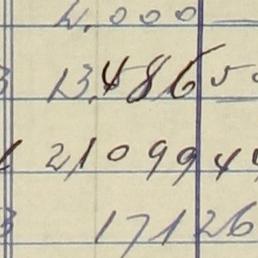 4,000
13,486 50
21,099 44
171 26